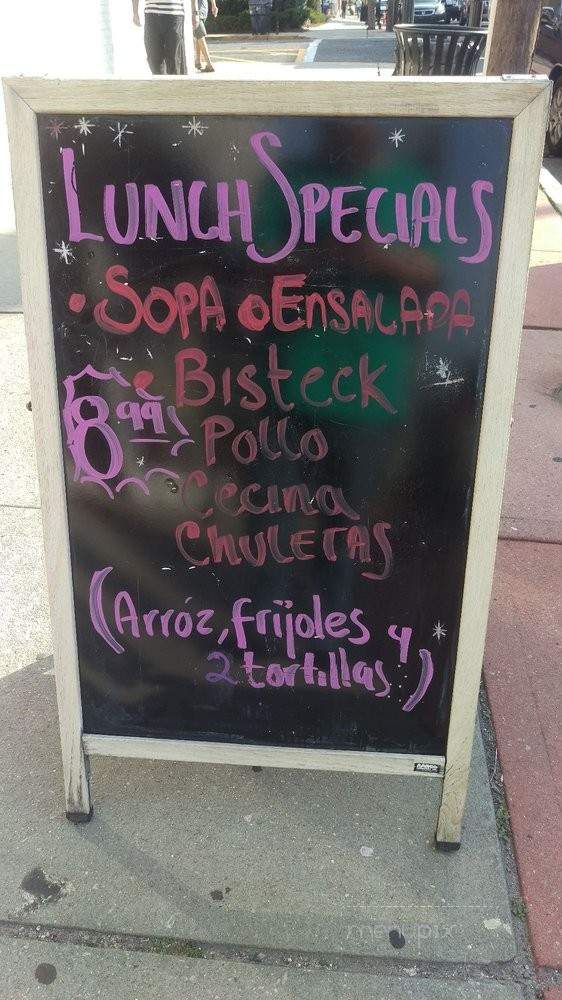 Lunch Specials
• Sopa o Ensalada
• Bisteck
8.99 Pollo
Cecina
Chuletas
(Arroz, frijoles y
2 tortillas)
menupix